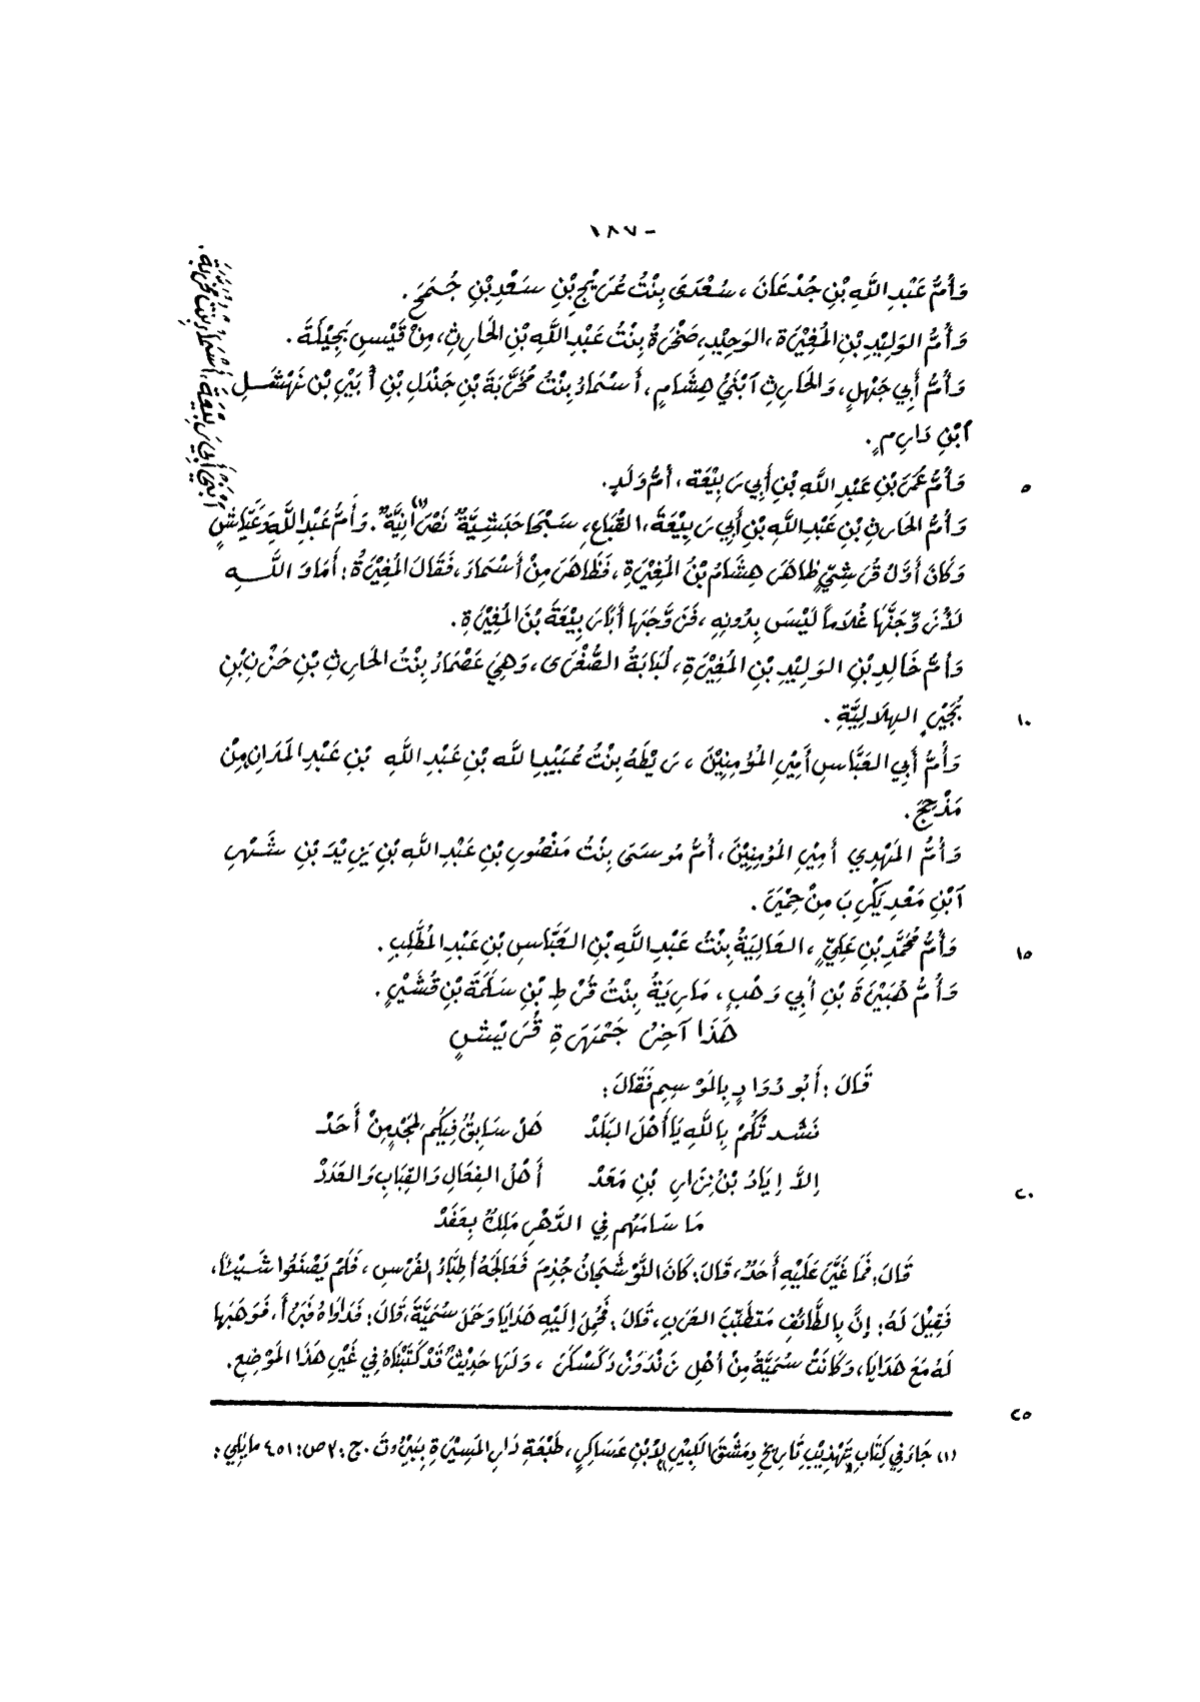 ١٨٧-
وَأُمُّ عَبْدِ اللَّهِ بْنِ جُدْعَانَ، سُعْدَى بِنْتُ عُرَيْجِ بْنِ سَعْدِ بْنِ جُمَحَ.
وَأُمُّ الوَلِيْدِ بْنِ المُغِيْرَةِ، الوَحِيْدِ، صَخْرَةُ بِنْتُ عَبْدِ اللَّهِ بْنِ الحَارِثِ، مِنْ قَيْسِ بَجِيْلَةَ.
وَأُمُّ أَبِي جَهْلٍ، وَالحَارِثِ ٱبْنَيْ هِشَامٍ، أَسْمَاءُ بِنْتُ مُخَرِّبَةَ بْنِ جَنْدَلِ بْنِ أُبَيْرِ بْنِ نَهْشَلِ
ٱبْنِ دَارِمٍ.
وَأُمُّ عُمَرَ بْنِ عَبْدِ اللَّهِ بْنِ أَبِي رَبِيْعَةَ، أُمُّ وَلَدٍ.
٥
وَأُمُّ الحَارِثِ بْنِ عَبْدِ اللَّهِ بْنِ أَبِي رَبِيْعَةَ، القُبَاعِ، سَبْحَا حَبَشِيَّةٌ نَصْرَانِيَّةٌ(١). وَأُمُّ عَبْدِ اللَّهِ وَعَيَّاشٍ
ٱبْنَيْ أَبِي رَبِيْعَةَ، أَسْمَاءُ بِنْتُ مُخَرِّبَةَ.
وَكَانَ أَوَّلُ قُرَشِيٍّ ظَاهَرَ هِشَامُ بْنُ المُغِيْرَةِ، فَظَاهَرَ مِنْ أَسْمَاءَ، فَقَالَ المُغِيْرَةُ: أَمَاوَاللَّهِ
لَأُزَوِّجَنَّهَا غُلَاماً لَيْسَ بِدُونِهِ، فَزَوَّجَهَا أَبَا رَبِيْعَةَ بْنَ المُغِيْرَةِ.
وَأُمُّ خَالِدِ بْنِ الوَلِيْدِ بْنِ المُغِيْرَةِ، لُبَابَةُ الصُّغْرَى، وَهِيَ عَصْمَاءُ بِنْتُ الحَارِثِ بْنِ حَزْنِ بْنِ
بُجَيْرٍ الهِلَالِيَّةِ.
١٠
وَأُمُّ أَبِي العَبَّاسِ أَمِيْرِ المُؤْمِنِيْنَ، رَيْطَةُ بِنْتُ عُبَيْدِ اللهِ بْنِ عَبْدِ اللَّهِ بْنِ عَبْدِ المَدَانِ مِنْ
مَذْحِجَ.
وَأُمُّ المَهْدِي أَمِيْرِ المُؤْمِنِيْنَ، أُمُّ مُوسَى بِنْتُ مَنْصُورِ بْنِ عَبْدِ اللَّهِ بْنِ يَزِيْدَ بْنِ شَهْرِ
ٱبْنِ مَعْدِيَكْرِبَ مِنْ حِمْيَرَ.
وَأُمُّ مُحَمَّدِ بْنِ عَلِيٍّ، العَالِيَةُ بِنْتُ عَبْدِ اللَّهِ بْنِ العَبَّاسِ بْنِ عَبْدِ المُطَّلِبِ.
١٥
وَأُمُّ هُبَيْرَةَ بْنِ أَبِي وَهْبٍ، مَارِيَةُ بِنْتُ قُرْطِ بْنِ سَلَمَةَ بْنِ قُشَيْرٍ.
هَذَا آخِرُ جَمْهَرَةِ قُرَيْشٍ
قَالَ: أَبُو دُوَادٍ بِالمَوْسِمِ فَقَالَ:
نَشَدتُكُمْ بِاللَّهِ يَا أَهْلَ البَلَدْ    هَلْ سَابِقٌ فِيكُمْ لِمَجْدٍ مِنْ أَحَدْ
إِلَّا إِيَادُ بْنُ نِزَارِ بْنِ مَعَدْ    أَهْلُ الفِعَالِ وَالقِبَابِ وَالعَدَدْ
٢٠
مَا سَامَهُم فِي الدَّهْرِ مَلِكٌ بِعَقَدْ
قَالَ: فَمَا غَيَّرَ عَلَيْهِ أَحَدٌ، قَالَ: كَانَ النُّوشَجَانُ جُذِمَ فَعَالَجَهُ أَطِبَّاءُ الفُرْسِ، فَلَمْ يَصْنَعُوا شَيْئاً،
فَقِيْلَ لَهُ: إِنَّ بِالطَّائِفِ مُتَطَبِّبَ العَرَبِ، قَالَ: فَحُمِلَ إِلَيْهِ هَدَايَا وَحَمَلَ سُمَيَّةَ، قَالَ: فَدَاوَاهُ فَبَرَأَ، فَوَهَبَهَا
لَهُ مَعَ هَدَايَا، وَكَانَتْ سُمَيَّةُ مِنْ أَهْلِ زَنْدَوَرْدْ كَسْكَرَ، وَلَهَا حَدِيْثٌ قَدْ كَتَبْنَاهُ فِي غَيْرِ هَذَا المَوْضِعِ.
٢٥
(١) جَاءَ فِي كِتَابِ تَهْذِيْبِ تَارِيخِ دِمَشْقَ الكَبِيْرِ لِابْنِ عَسَاكِرٍ، طَبْعَةِ دَارِ المَسِيْرَةِ بِبَيْرُوتَ. ج: ٣ ص: ٤٥١ مايَلِي: